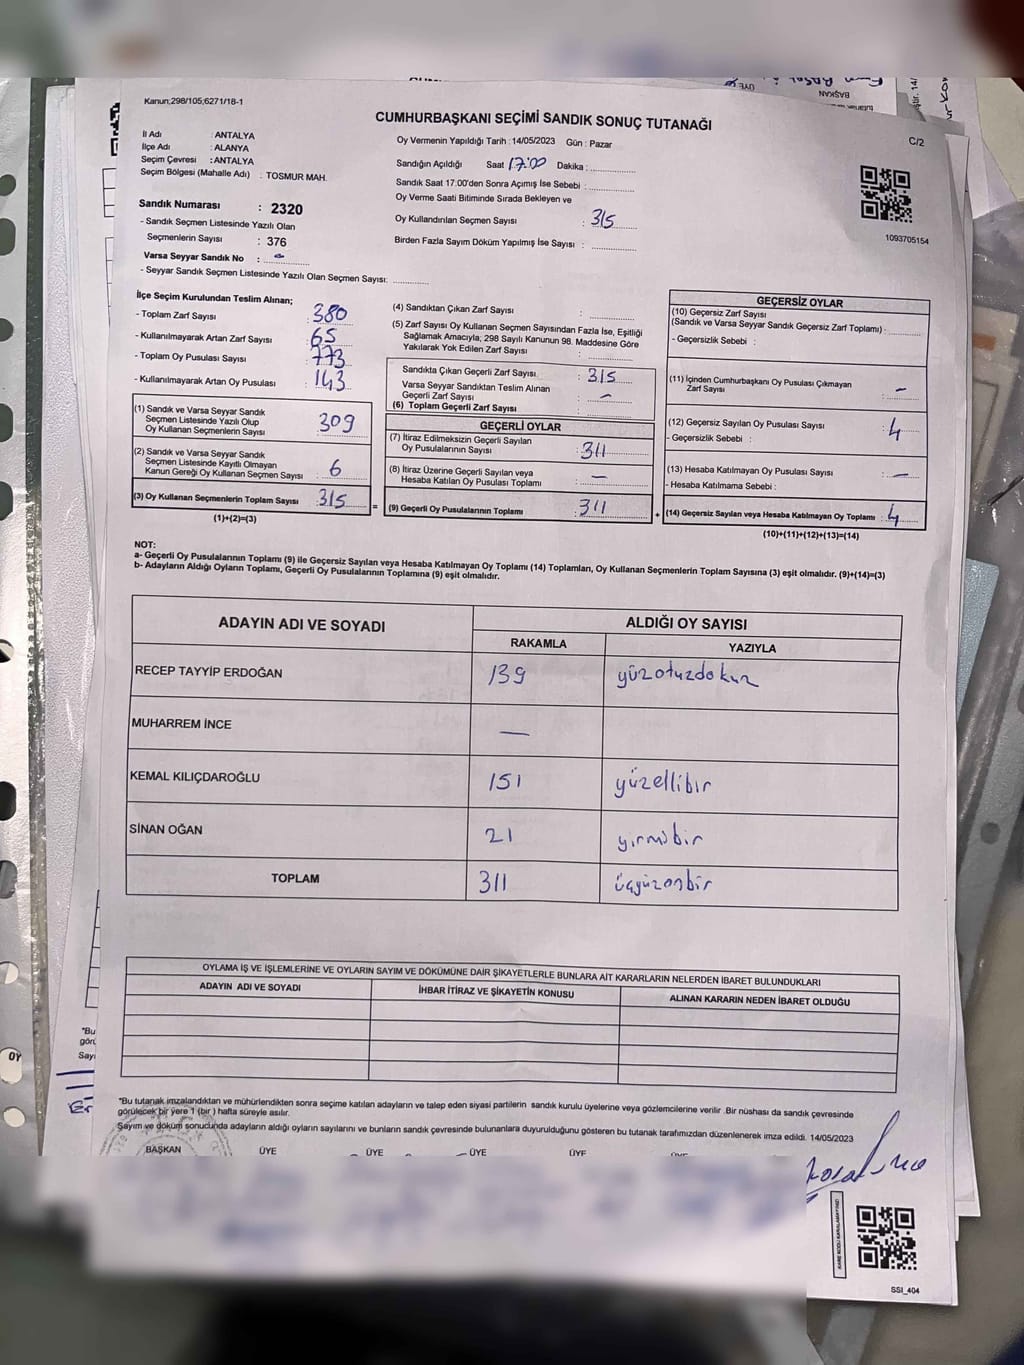 Kanun;298/105;6271/18-1
CUMHURBAŞKANI SEÇİMİ SANDIK SONUÇ TUTANAĞI
C/2
İl Adı : ANTALYA
İlçe Adı : ALANYA
Seçim Çevresi : ANTALYA
Seçim Bölgesi (Mahalle Adı) : TOSMUR MAH.
Sandık Numarası : 2320
- Sandık Seçmen Listesinde Yazılı Olan
Seçmenlerin Sayısı : 376
Varsa Seyyar Sandık No : -
- Seyyar Sandık Seçmen Listesinde Yazılı Olan Seçmen Sayısı:
Oy Vermenin Yapıldığı Tarih : 14/05/2023 Gün : Pazar
Sandığın Açıldığı Saat 17:00 Dakika :
Sandık Saat 17:00'den Sonra Açımış İse Sebebi :
Oy Verme Saati Bitiminde Sırada Bekleyen ve
Oy Kullandırılan Seçmen Sayısı : 315
Birden Fazla Sayım Döküm Yapılmış İse Sayısı :
1093705154
İlçe Seçim Kurulundan Teslim Alınan;
- Toplam Zarf Sayısı 380
- Kullanılmayarak Artan Zarf Sayısı 65
- Toplam Oy Pusulası Sayısı 773
- Kullanılmayarak Artan Oy Pusulası 143
(1) Sandık ve Varsa Seyyar Sandık
Seçmen Listesinde Yazılı Olup
Oy Kullanan Seçmenlerin Sayısı : 309
(2) Sandık ve Varsa Seyyar Sandık
Seçmen Listesinde Kayıtlı Olmayan
Kanun Gereği Oy Kullanan Seçmen Sayısı : 6
(3) Oy Kullanan Seçmenlerin Toplam Sayısı : 315
(1)+(2)=(3)
(4) Sandıktan Çıkan Zarf Sayısı :
(5) Zarf Sayısı Oy Kullanan Seçmen Sayısından Fazla İse, Eşitliği
Sağlamak Amacıyla; 298 Sayılı Kanunun 98. Maddesine Göre
Yakılarak Yok Edilen Zarf Sayısı :
Sandıkta Çıkan Geçerli Zarf Sayısı : 315
Varsa Seyyar Sandıktan Teslim Alınan
Geçerli Zarf Sayısı : -
(6) Toplam Geçerli Zarf Sayısı :
GEÇERLİ OYLAR
(7) İtiraz Edilmeksizin Geçerli Sayılan
Oy Pusulalarının Sayısı : 311
(8) İtiraz Üzerine Geçerli Sayılan veya
Hesaba Katılan Oy Pusulası Toplamı : -
(9) Geçerli Oy Pusulalarının Toplamı : 311
=
+
GEÇERSİZ OYLAR
(10) Geçersiz Zarf Sayısı
(Sandık ve Varsa Seyyar Sandık Geçersiz Zarf Toplamı) :
- Geçersizlik Sebebi :
(11) İçinden Cumhurbaşkanı Oy Pusulası Çıkmayan
Zarf Sayısı : -
(12) Geçersiz Sayılan Oy Pusulası Sayısı : 4
- Geçersizlik Sebebi :
(13) Hesaba Katılmayan Oy Pusulası Sayısı : -
- Hesaba Katılmama Sebebi :
(14) Geçersiz Sayılan veya Hesaba Katılmayan Oy Toplamı : 4
(10)+(11)+(12)+(13)=(14)
NOT:
a- Geçerli Oy Pusulalarının Toplamı (9) ile Geçersiz Sayılan veya Hesaba Katılmayan Oy Toplamı (14) Toplamları, Oy Kullanan Seçmenlerin Toplam Sayısına (3) eşit olmalıdır. (9)+(14)=(3)
b- Adayların Aldığı Oyların Toplamı, Geçerli Oy Pusulalarının Toplamına (9) eşit olmalıdır.
ADAYIN ADI VE SOYADI
ALDIĞI OY SAYISI
RAKAMLA YAZIYLA
RECEP TAYYİP ERDOĞAN 139 yüzotuzdokuz
MUHARREM İNCE —
KEMAL KILIÇDAROĞLU 151 yüzellibir
SİNAN OĞAN 21 yirmibir
TOPLAM 311 üçyüzonbir
OYLAMA İŞ VE İŞLEMLERİNE VE OYLARIN SAYIM VE DÖKÜMÜNE DAİR ŞİKAYETLERLE BUNLARA AİT KARARLARIN NELERDEN İBARET BULUNDUKLARI
ADAYIN ADI VE SOYADI İHBAR İTİRAZ VE ŞİKAYETİN KONUSU ALINAN KARARIN NEDEN İBARET OLDUĞU
"Bu tutanak imzalandıktan ve mühürlendikten sonra seçime katılan adayların ve talep eden siyasi partilerin sandık kurulu üyelerine veya gözlemcilerine verilir .Bir nüshası da sandık çevresinde
görülecek bir yere 1 (bir ) hafta süreyle asılır.
Sayım ve döküm sonucunda adayların aldığı oyların sayılarını ve bunların sandık çevresinde bulunanlara duyurulduğunu gösteren bu tutanak tarafımızdan düzenlenerek imza edildi. 14/05/2023
BAŞKAN ÜYE ÜYE ÜYE ÜYE
SSI_404